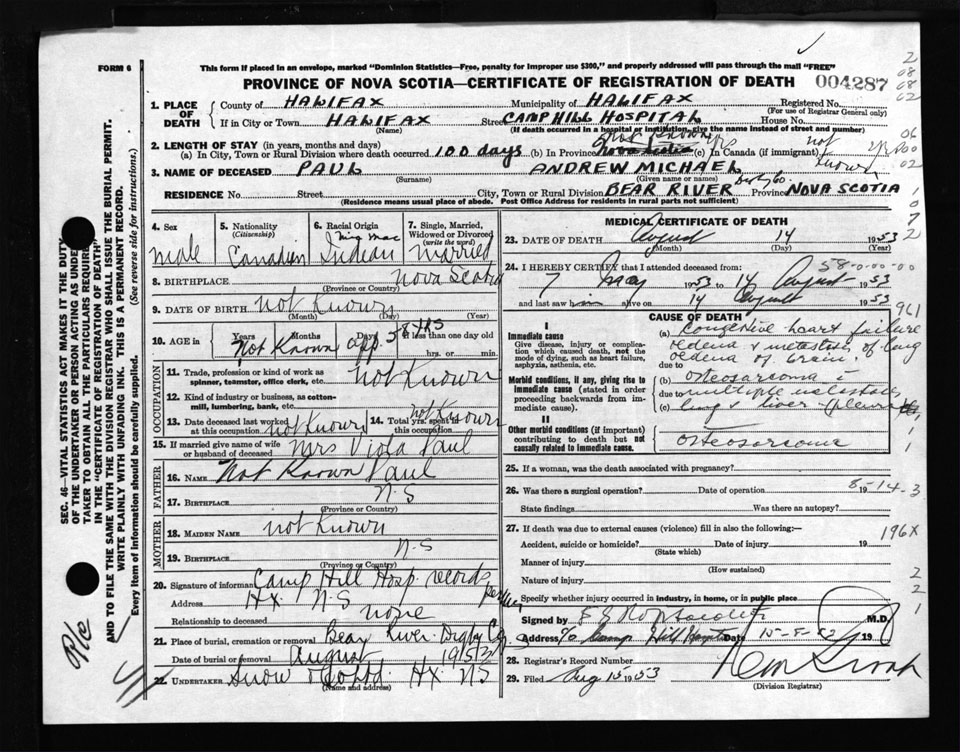 This form if placed in an envelope, marked "Dominion Statistics—Free, penalty for improper use $300," and properly addressed will pass through the mail "FREE"
FORM 6
PROVINCE OF NOVA SCOTIA—CERTIFICATE OF REGISTRATION OF DEATH
004287
1. PLACE OF DEATH County of HALIFAX Municipality of HALIFAX Registered No.
(For use of Registrar General only)
If in City or Town HALIFAX Street CAMP HILL HOSPITAL House No.
(Name) (If death occurred in a hospital or institution, give the name instead of street and number)
2. LENGTH OF STAY (in years, months and days)
(a) In City, Town or Rural Division where death occurred 100 days (b) In Province Nova Scotia (c) In Canada (if immigrant) not known
3. NAME OF DECEASED PAUL ANDREW MICHAEL
(Surname) (Given name or names)
RESIDENCE No. Street City, Town or Rural Division BEAR RIVER Province NOVA SCOTIA
(Residence means usual place of abode. Post Office Address for residents in rural parts not sufficient)
4. Sex male
5. Nationality (Citizenship) Canadian
6. Racial Origin Mic Mac Indian
7. Single, Married, Widowed or Divorced (write the word) married
8. BIRTHPLACE Nova Scotia
(Province or Country)
9. DATE OF BIRTH not Known
(Month) (Day) (Year)
10. AGE in Years Months Days If less than one day old
Not Known app. 58 yrs hrs. or min.
OCCUPATION
11. Trade, profession or kind of work as spinner, teamster, office clerk, etc. not Known
12. Kind of industry or business, as cotton-mill, lumbering, bank, etc.
13. Date deceased last worked at this occupation not Known
14. Total yrs. spent in this occupation not Known
15. If married give name of wife or husband of deceased Mrs Viola Paul
FATHER
16. NAME Not Known Paul
17. BIRTHPLACE N-S
(Province or Country)
MOTHER
18. MAIDEN NAME not Known
19. BIRTHPLACE N-S
(Province or Country)
20. Signature of informant Camp Hill Hosp. records
Address Hx N-S
Relationship to deceased none
21. Place of burial, cremation or removal Bear River Digby Co.
Date of burial or removal August 1953
22. UNDERTAKER Snow & Co Ltd. Hx. NS
(Name and address)
MEDICAL CERTIFICATE OF DEATH
23. DATE OF DEATH August 14 1953
(Month) (Day) (Year)
58-0-00-00
24. I HEREBY CERTIFY that I attended deceased from
7 May 1953 to 14 August 1953
and last saw him alive on 14 August 1953
CAUSE OF DEATH
I
Immediate cause
Give disease, injury or complication which caused death, not the mode of dying, such as heart failure, asphyxia, asthenia, etc.
(a) Congestive heart failure
oedema & metastasis of lung
oedema of brain.
due to
Morbid conditions, if any, giving rise to immediate cause (stated in order proceeding backwards from immediate cause).
(b) Osteosarcoma c̄
due to multiple metastases
(c) lung & liver (pleura)
II
Other morbid conditions (if important) contributing to death but not causally related to immediate cause.
Osteosarcoma
25. If a woman, was the death associated with pregnancy?
26. Was there a surgical operation? Date of operation 19
8-14-3
State findings Was there an autopsy?
27. If death was due to external causes (violence) fill in also the following:—
196X
Accident, suicide or homicide? Date of injury 19
(State which)
Manner of injury
(How sustained)
Nature of injury
Specify whether injury occurred in industry, in home, or in public place
Signed by M.D.
Address c/o Camp Hill Hospital Date 15-8-52 19
28. Registrar's Record Number
29. Filed Aug 15 1953
(Division Registrar)
SEC. 46—VITAL STATISTICS ACT MAKES IT THE DUTY OF THE UNDERTAKER OR PERSON ACTING AS UNDERTAKER TO OBTAIN ALL THE PARTICULARS REQUIRED IN THE "CERTIFICATE OF REGISTRATION OF DEATH" AND TO FILE THE SAME WITH THE DIVISION REGISTRAR WHO SHALL ISSUE THE BURIAL PERMIT.
WRITE PLAINLY WITH UNFADING INK. THIS IS A PERMANENT RECORD.
Every item of information should be carefully supplied. (See reverse side for instructions.)